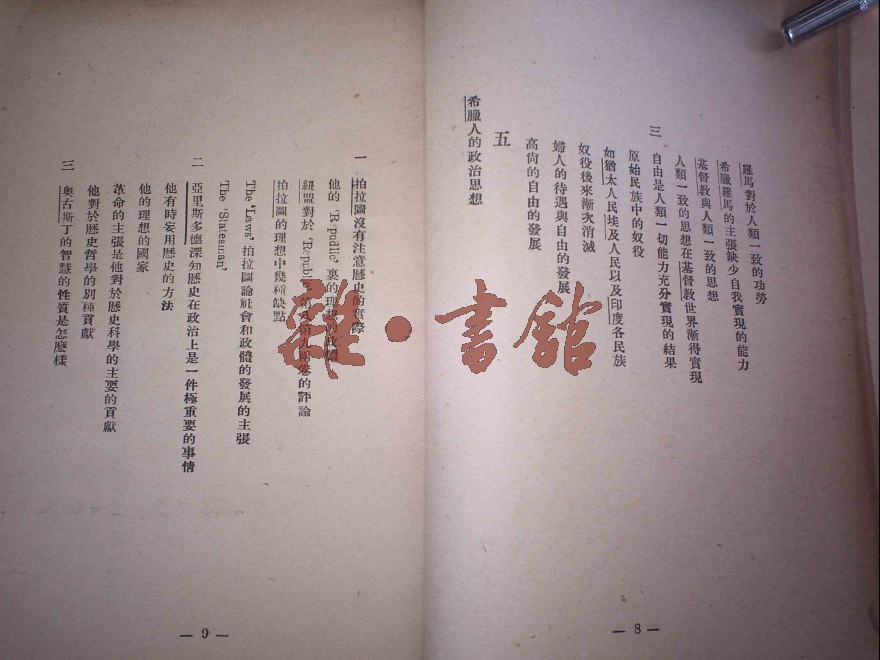 羅馬對於人類一致的功勞
希臘羅馬的主張缺少自我實現的能力
基督教與人類一致的思想
人類一致的思想在基督教世界漸得實現
三 自由是人類一切能力充分實現的結果
原始民族中的奴役
如猶太人民埃及人民以及印度各民族
奴役後來漸次消滅
婦人的待遇與自由的發展
高尙的自由的發展
五
希臘人的政治思想
— 8 —
一 柏拉圖沒有注意歷史的實際
他的 'Republic' 裏的理想的政體
紐盟對於 'Republic' 的第九兩卷的評論
柏拉圖的理想中幾種缺點
The 'Laws' 柏拉圖論社會和政體的發展的主張
The 'Statesman'
二 亞里斯多德深知歷史在政治上是一件極重要的事情
他有時妄用歷史的方法
他的理想的國家
革命的主張是他對於歷史科學的主要的貢獻
他對於歷史哲學的別種貢獻
三 奧古斯丁的智慧的性質是怎麽樣
— 9 —
雜·書館